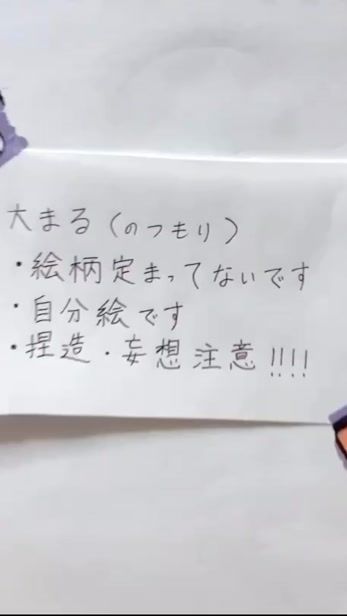 大まる(のつもり)
・絵柄定まってないです
・自分絵です
・捏造・妄想注意!!!!